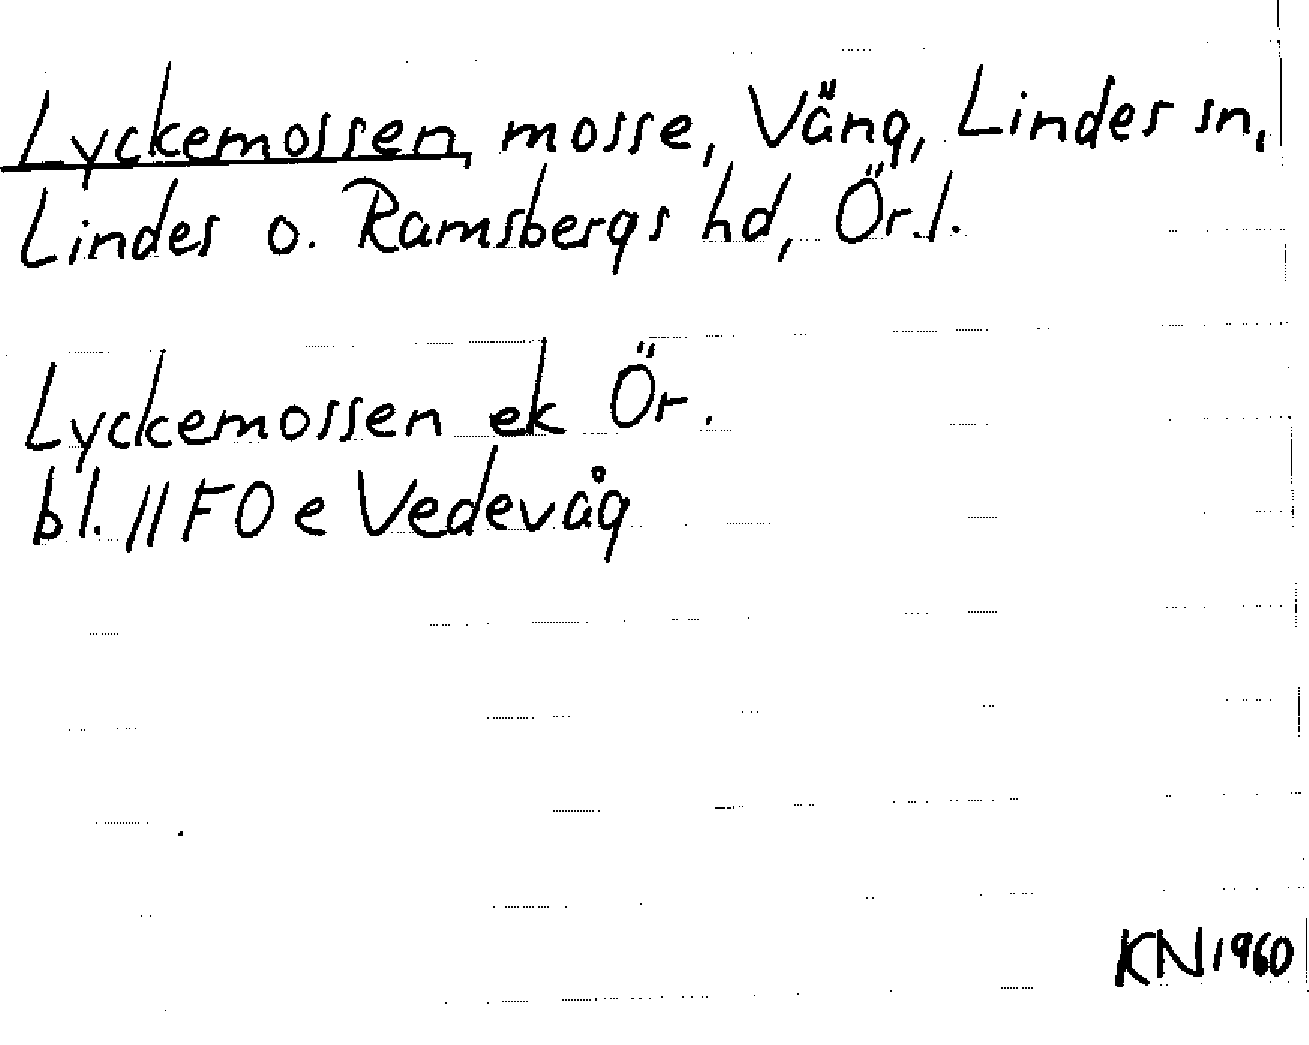 Lyckemossen, mosse, Väng, Lindes sn,
Lindes o. Ramsbergs hd, Ör. l.
Lyckemossen ek Ör.
bl. 11 F O e Vedevåg
KN 1960